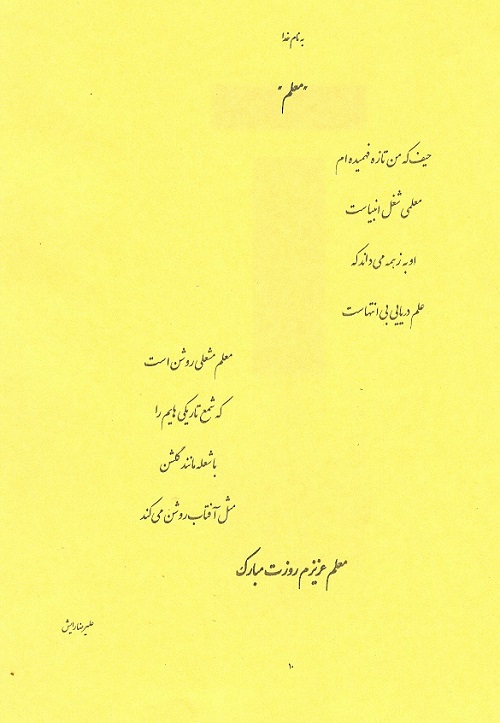 به نام خدا
"معلم"
حیف که من تازه فهمیده ام
معلمی شغل انبیاست
او به ز همه می داند که
علم دریایی بی انتهاست
معلم مشعلی روشن است
که شمع تاریکی هایم را
با شعله مانند گلشن
مثل آفتاب روشن می کند
معلم عزیزم روزت مبارک
علیرضا رایش
۱۰